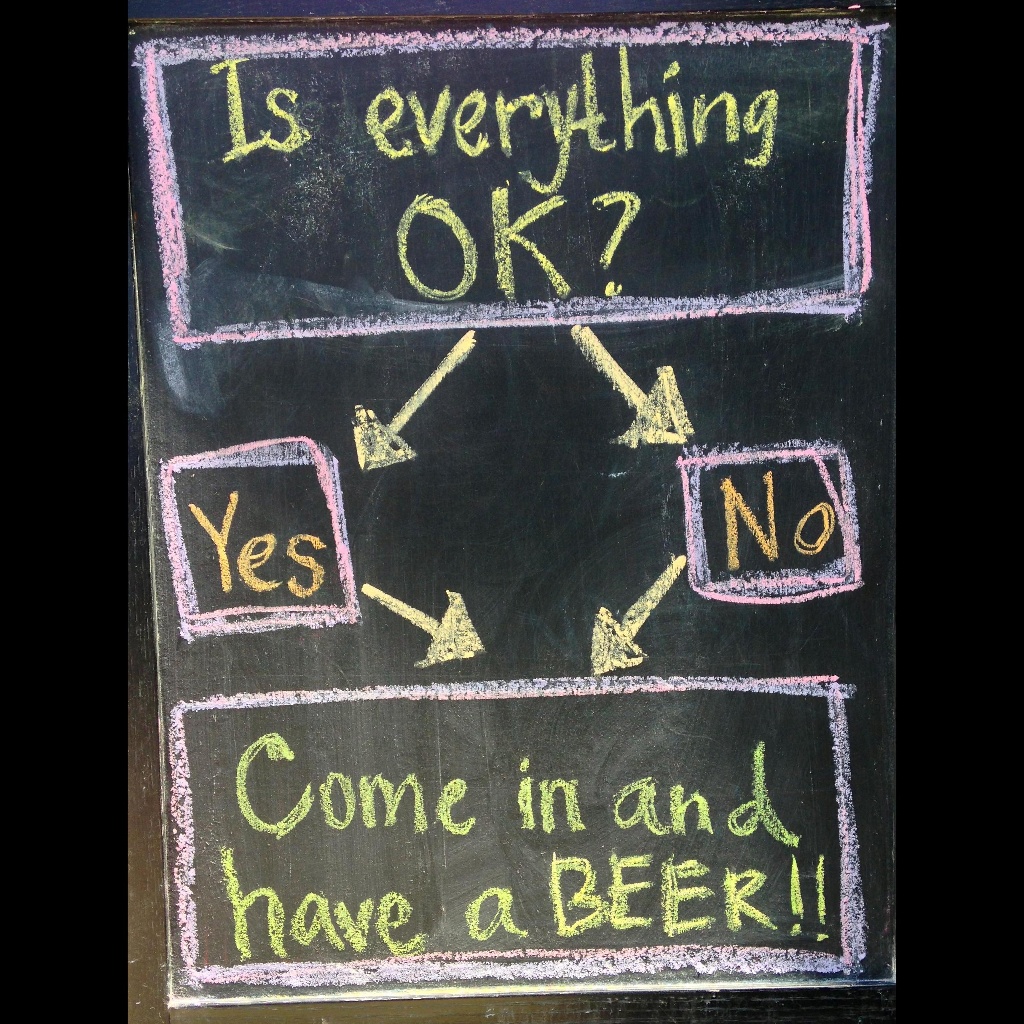 Is everything
OK?
Yes
No
Come in and
have a BEER!!